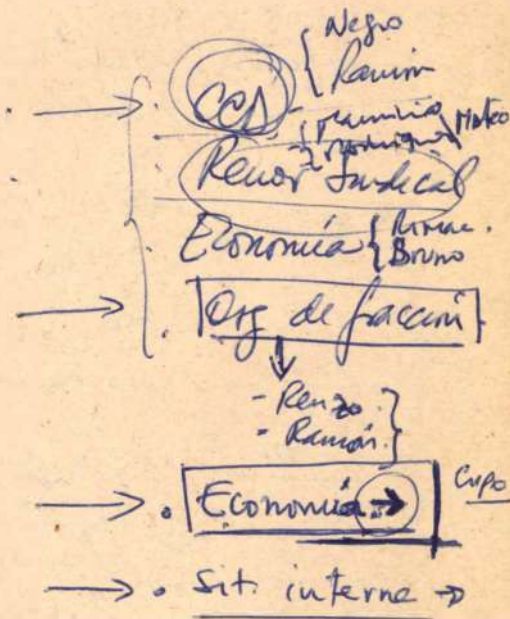 Negro
Ramón
CCD
Mateo
Renov Sindical
Economía
Bruno
Org de fracción
- Renzo
- Ramón
Economía
Cupo
Sit. interna